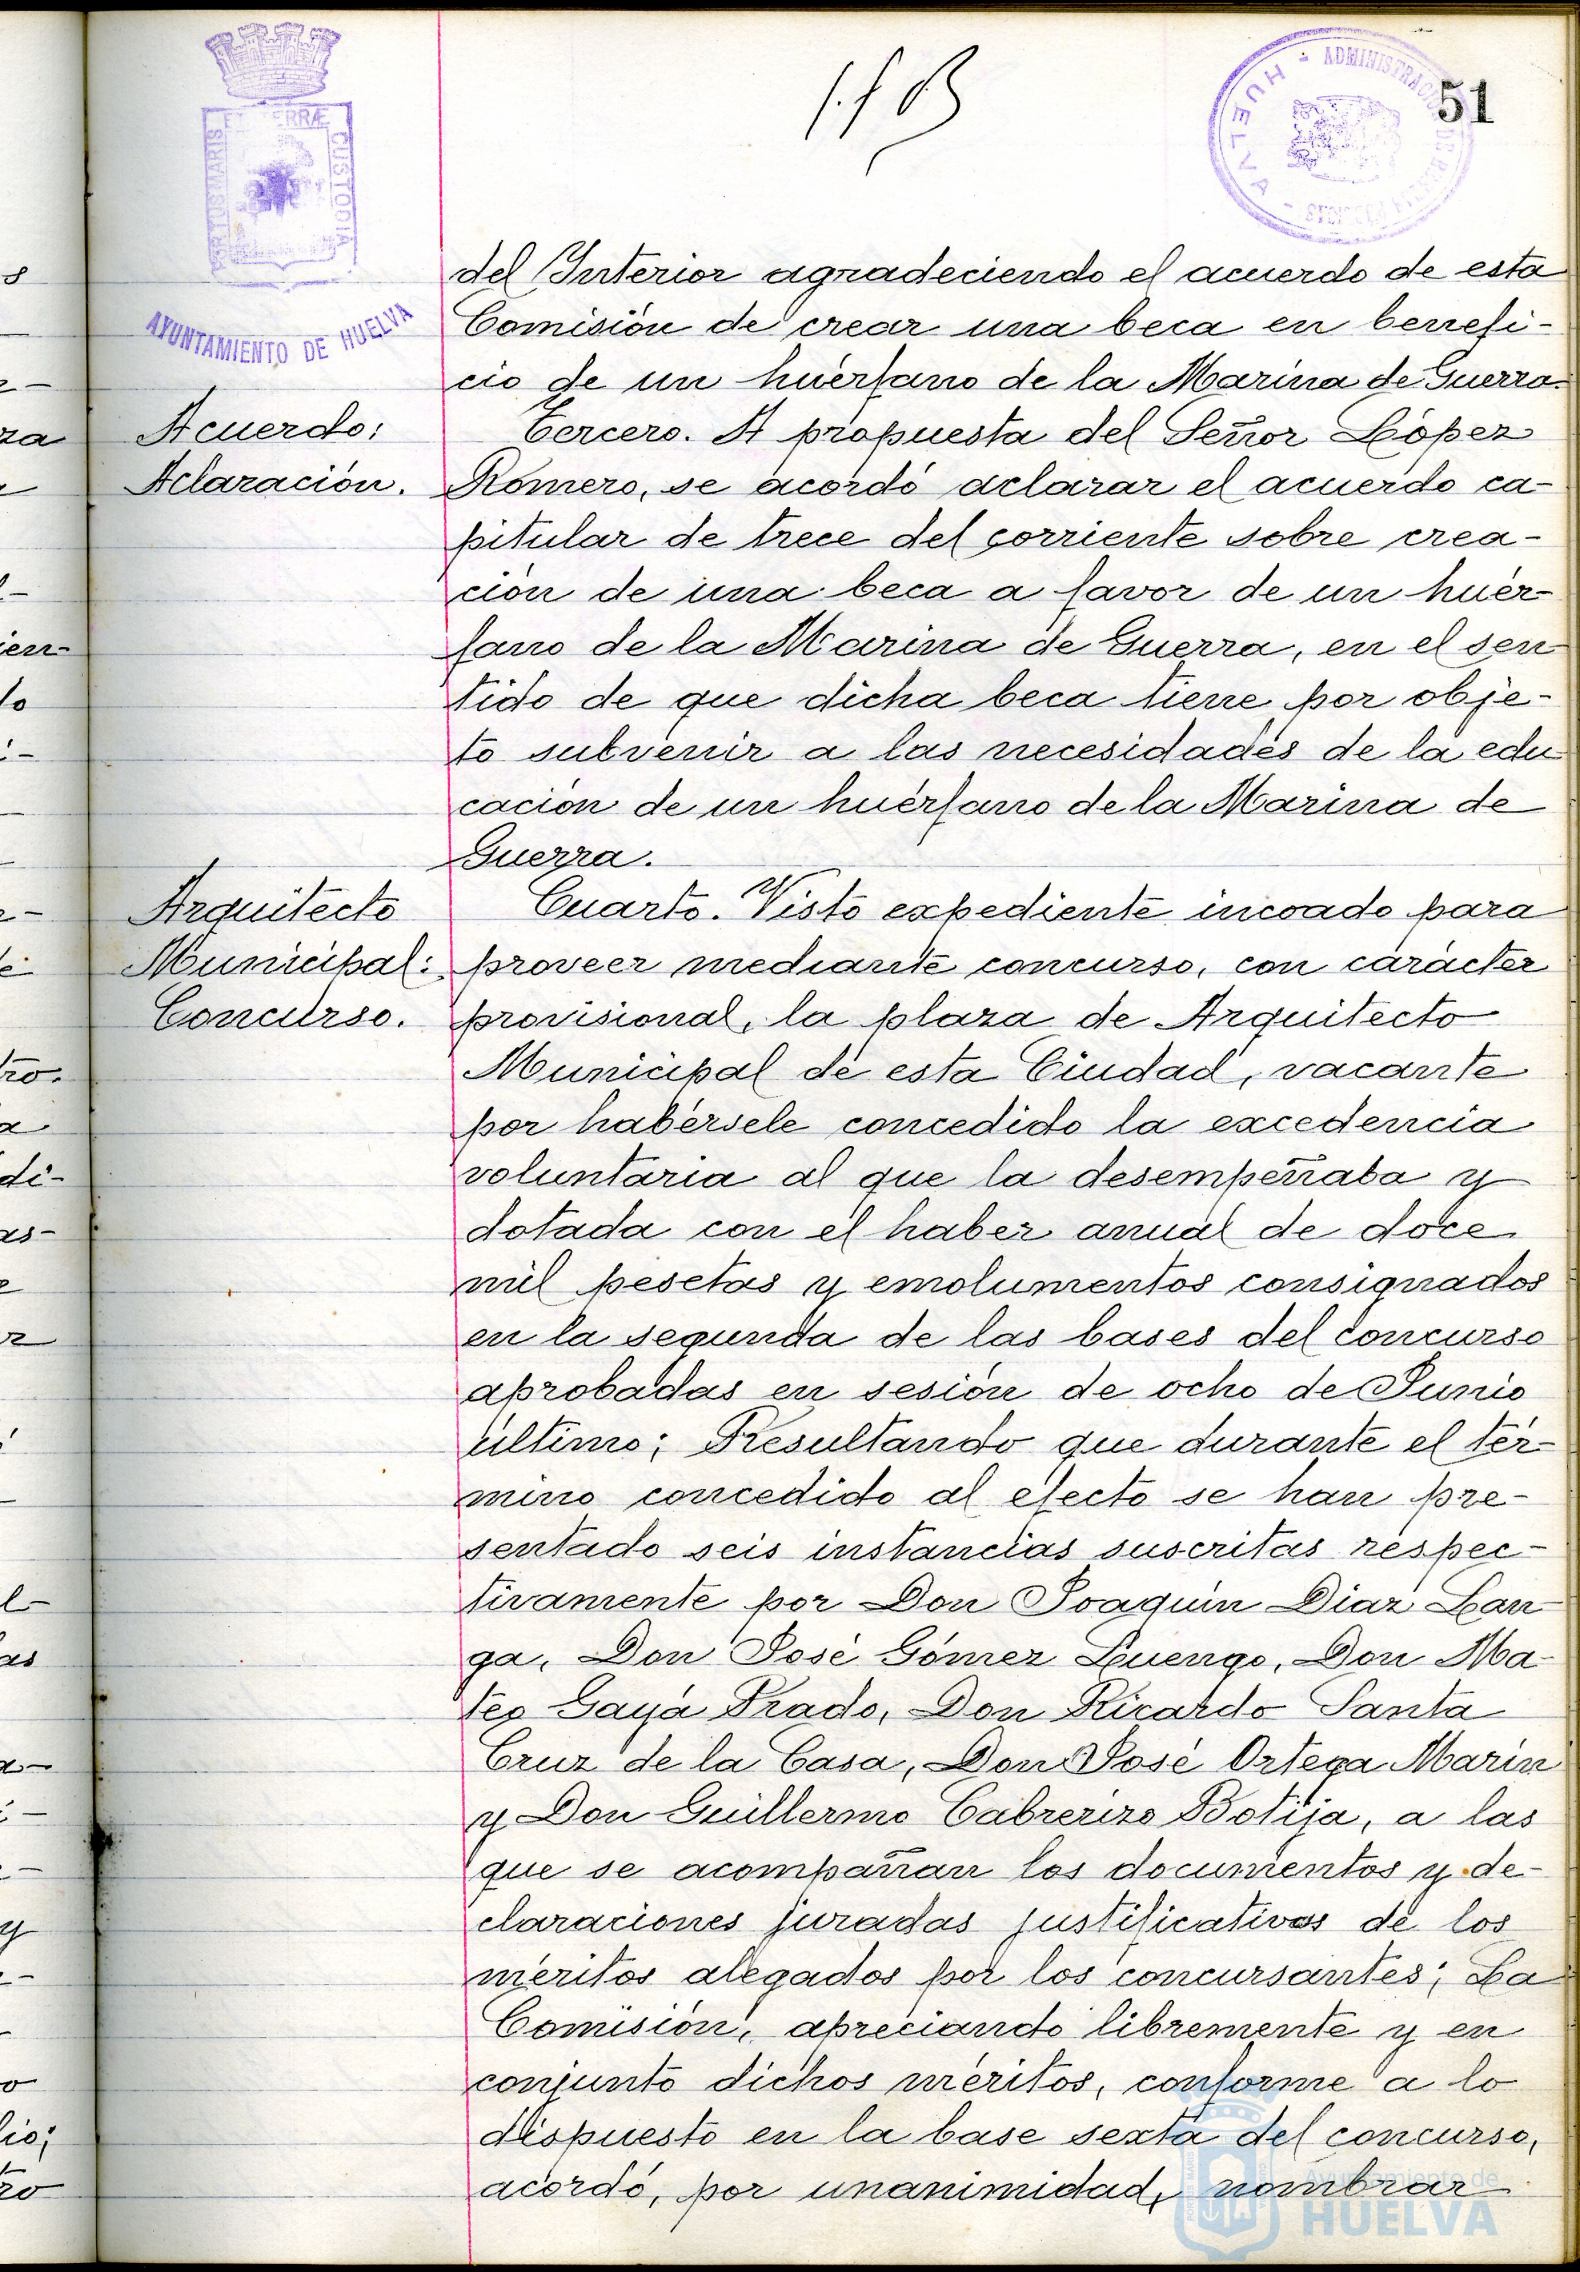 51
ADMINISTRACIÓN
HUELVA
PORTUS MARIS
ET TERRÆ
CUSTODIA
AYUNTAMIENTO DE HUELVA
del Interior agradeciendo el acuerdo de esta
Comisión de crear una beca en benefi-
cio de un huérfano de la Marina de Guerra.
Acuerdo:
Aclaración.
Tercero. A propuesta del Señor López
Romero, se acordó aclarar el acuerdo ca-
pitular de trece del corriente sobre crea-
ción de una beca a favor de un huér-
fano de la Marina de Guerra, en el sen
tido de que dicha beca tiene por obje-
to subvenir a las necesidades de la edu
cación de un huérfano de la Marina de
Guerra.
Arquitecto
Municipal:
Concurso.
Cuarto. Visto expediente incoado para
proveer mediante concurso, con carácter
provisional, la plaza de Arquitecto
Municipal de esta Ciudad, vacante
por habérsele concedido la excedencia
voluntaria al que la desempeñaba y
dotada con el haber anual de doce
mil pesetas y emolumentos consignados
en la segunda de las bases del concurso
aprobadas en sesión de ocho de Junio
último; Resultando que durante el tér-
mino concedido al efecto se han pre-
sentado seis instancias suscritas respec-
tivamente por Don Joaquín Díaz Lan
ga, Don José Gómez Luengo, Don Ma-
teo Gayá Prado, Don Ricardo Santa
Cruz de la Casa, Don José Ortega Marín
y Don Guillermo Cabrerizo Botija, a las
que se acompañan los documentos y de-
claraciones juradas justificativos de los
méritos alegados por los concursantes; La
Comisión, apreciando libremente y en
conjunto dichos méritos, conforme a lo
dispuesto en la base sexta del concurso,
acordó, por unanimidad, nombrar
Ayuntamiento de
HUELVA